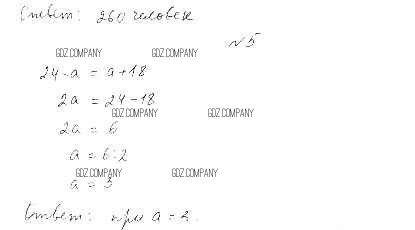 Ответ: 260 человек
№5
GDZ.COMPANY GDZ.COMPANY
24-a = a+18
2a = 24-18
GDZ.COMPANY GDZ.COMPANY
2a = 6
a = 6:2
GDZ.COMPANY GDZ.COMPANY
a = 3
Ответ: при a = 3.